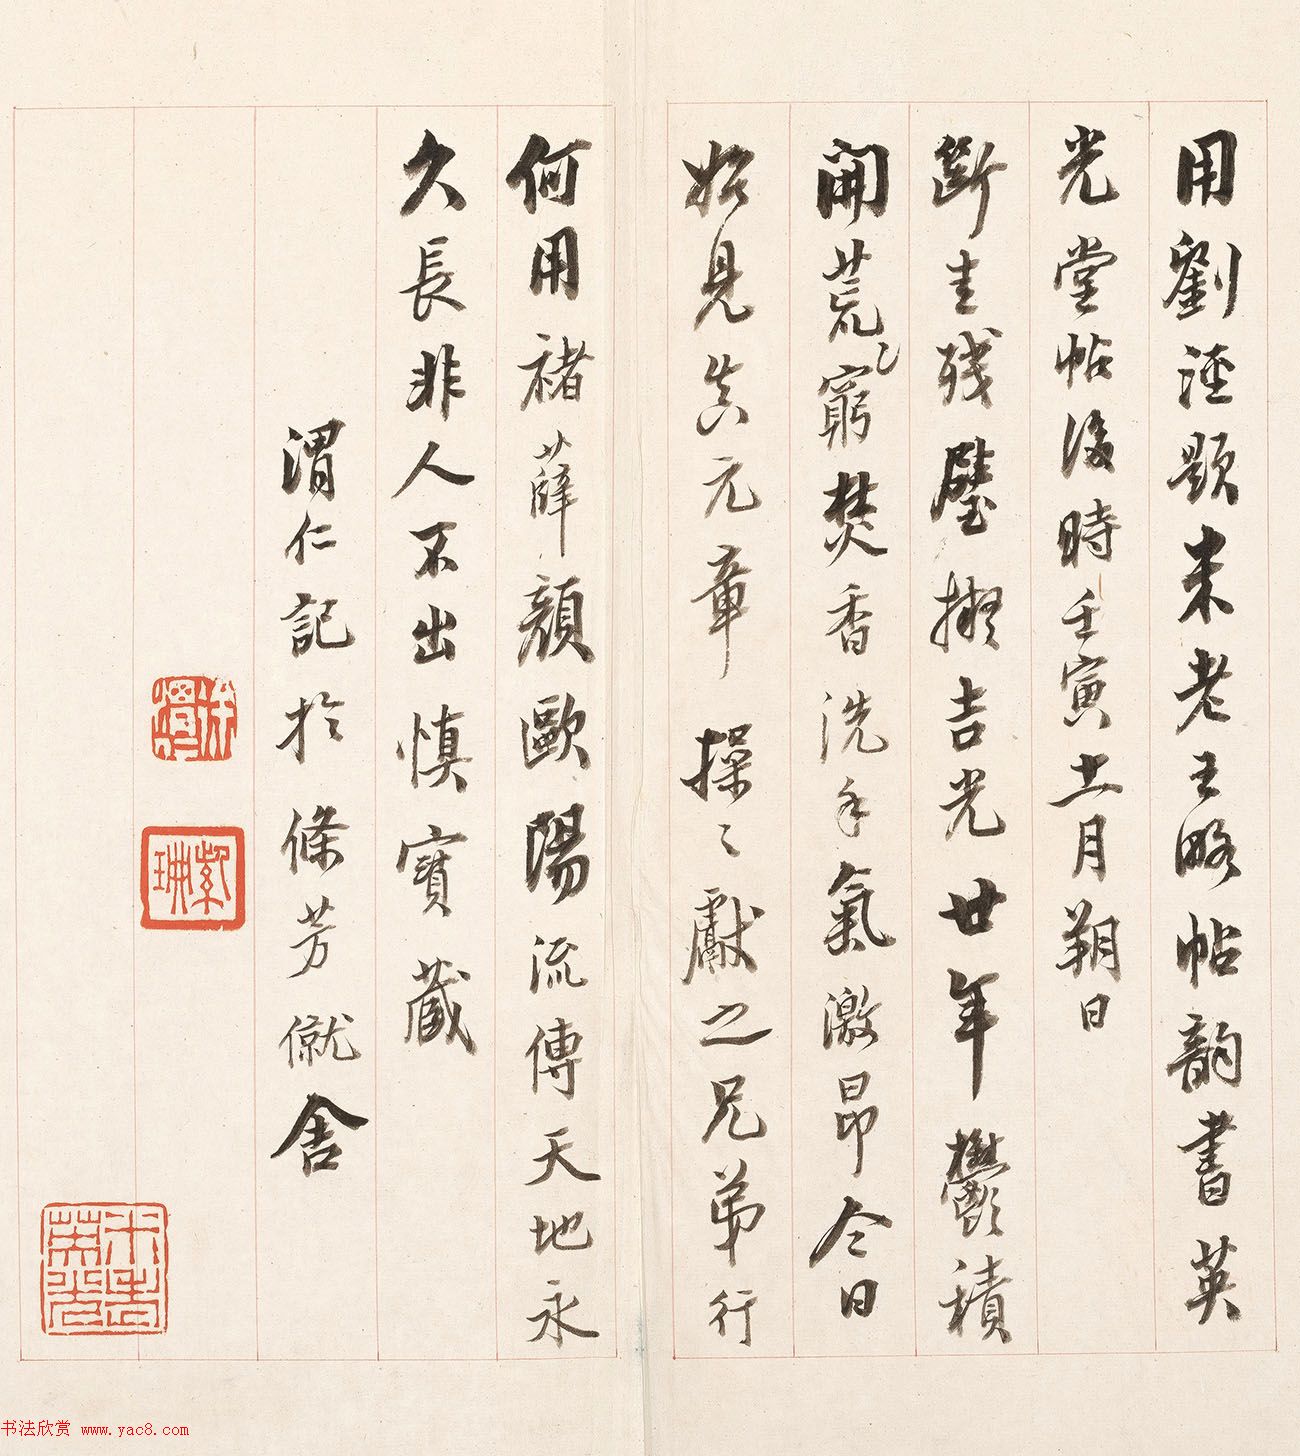 用劉涇題米老王略帖韵書英
光堂帖後時壬寅十一月朔日
斷圭殘璧擬吉光廿年鬱積
開荒窮焚香洗手氣激昂今日
始見真元章操〻獻之兄弟行
何用褚薛顏歐陽流傳天地永
久長非人不出慎寶藏
渭仁記於條芳僦舍
紫珊
书法欣赏 www.yac8.com